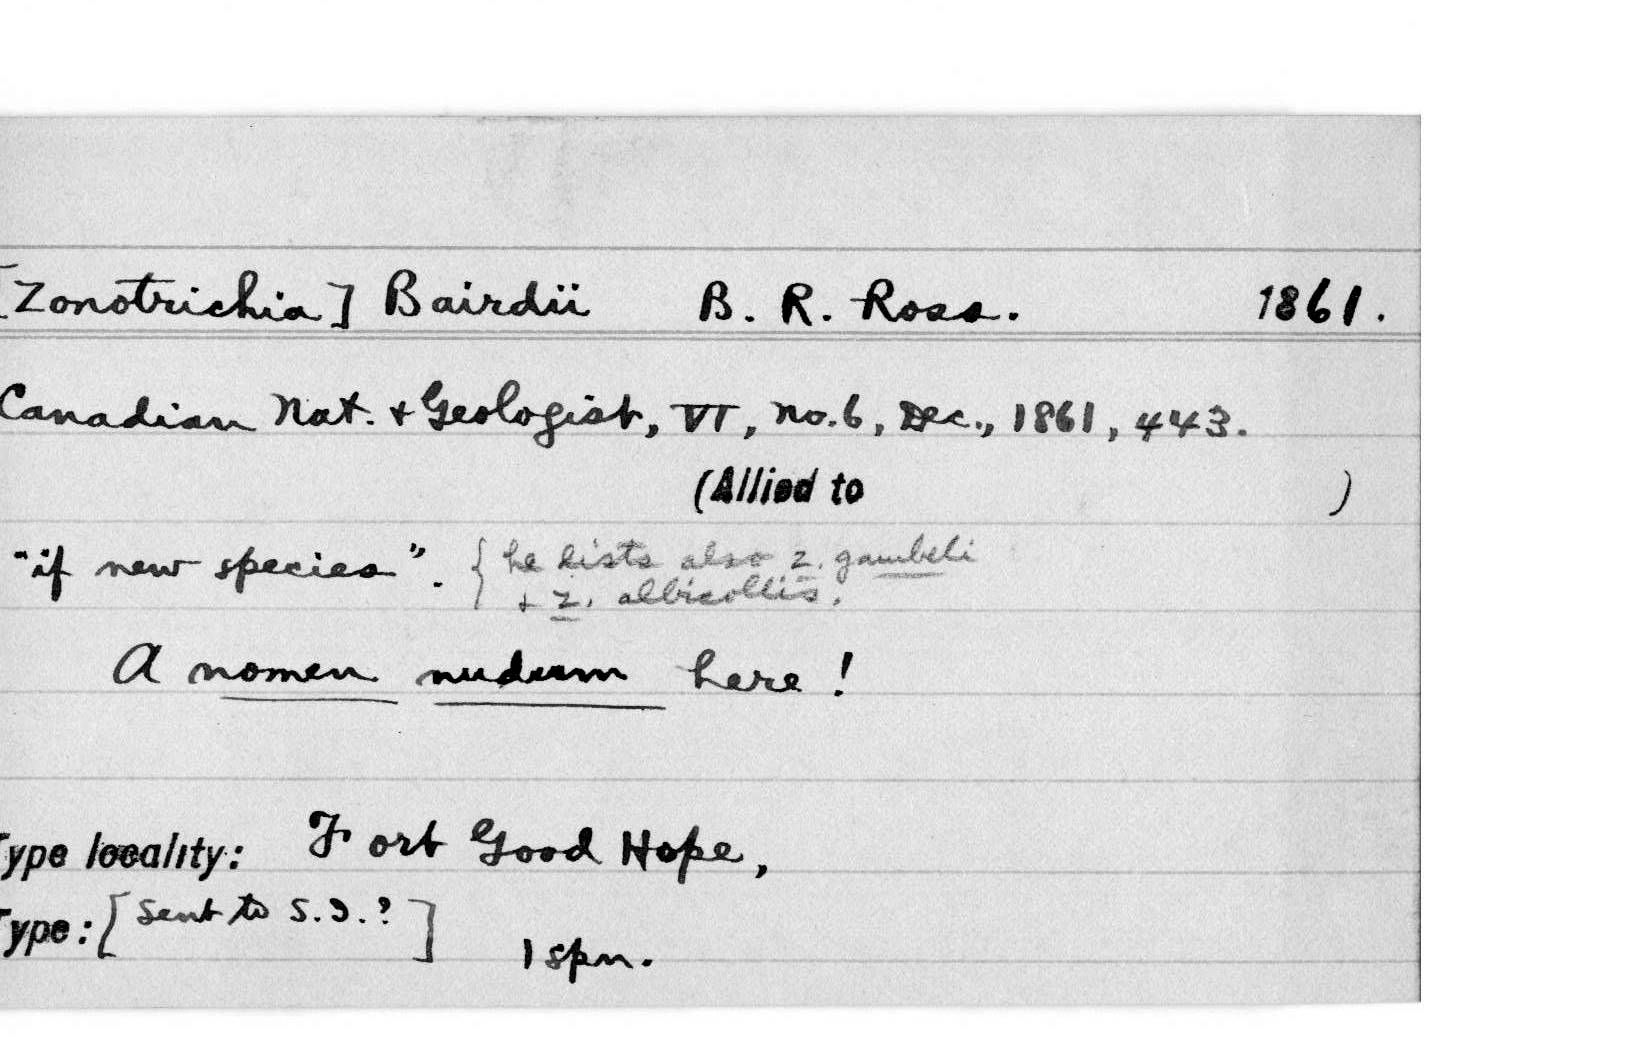 [Zonotrichia] Bairdii B. R. Ross. 1861.
Canadian Nat. + Geologist, VI, no. 6, Dec., 1861, 443.
(Allied to )
"if new species". { he lists also Z. gambeli
+ Z. albicollis.
A nomen nudum here!
Type locality: Fort Good Hope,
Type: [Sent to S.I.?]
1 spn.